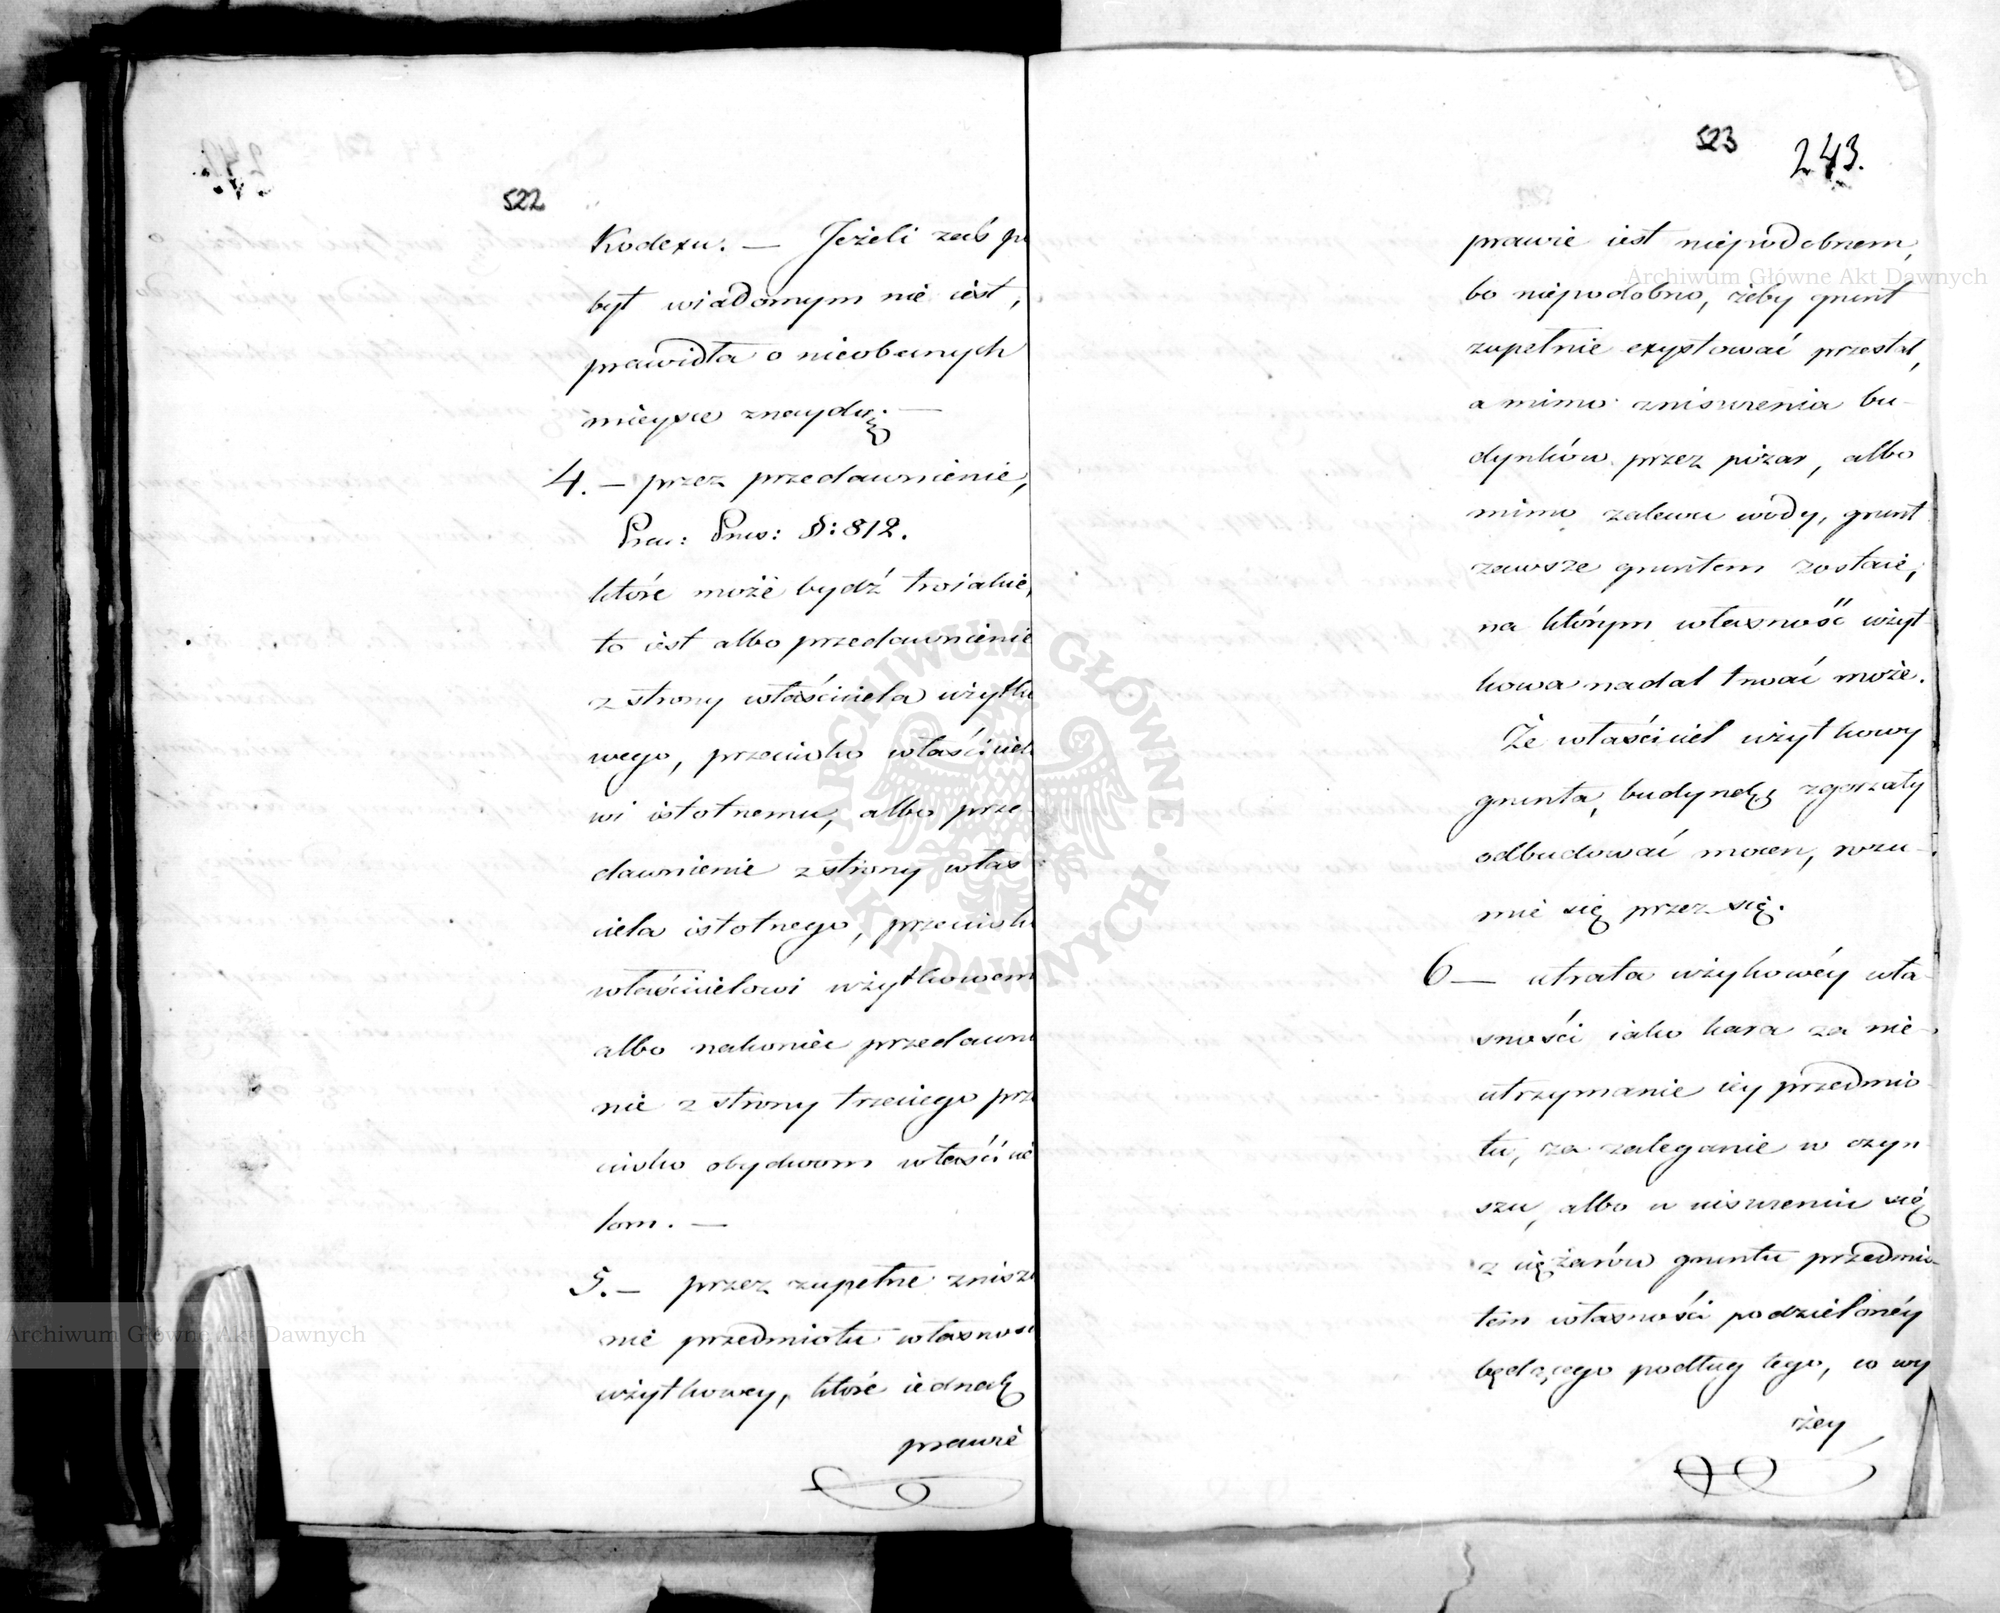 522
Kodexu. — Jeżeli zaś po
byt wiadomym nie iest,
prawidła o nieobecnych
mieysce znaydą. —
4. — przez przedawnienie,
Praw: Prus: §: 812.
które może bydź troiakie,
to iest albo przedawnienie
z strony właściciela użytko
wego, przeciwko właściciel
wi istotnemu, albo prze-
dawnienie z strony właś
ciela istotnego, przeciwk
właścicielowi użytkowem
albo nakoniec przedawni
nie z strony trzeciego prze
ciwko obydwom właścicie
lom. —
5. — przez zupełne znisz
nie przedmiotu własnoś
użytkowey, które iednak
prawie
523
243.
prawie iest niepodobnem,
bo niepodobno, żeby grunt
zupełnie exystować przestał,
a mimo zniszczenia bu-
dynków przez pożar, albo
mimo zalewu wody, grunt
zawsze gruntem zostaie,
na którym własność użyt-
kowa nadal trwać może.
Że właściciel użytkowy
gruntu, budynek zgorzały
odbudować mocen, rozu-
mie się przez się.
6 — utrata użykowéy wła-
sności iako kara za nie-
utrzymanie iey przedmio-
tu, za zaleganie w czyn
szu, albo w uiszczeniu się
z ciężarów gruntu przedmio-
tem własności podzielonéy
będącego podług tego, co wy
żey
Archiwum Główne Akt Dawnych
ARCHIWUM GŁÓWNE · AKT DAWNYCH ·
Archiwum Główne Akt Dawnych